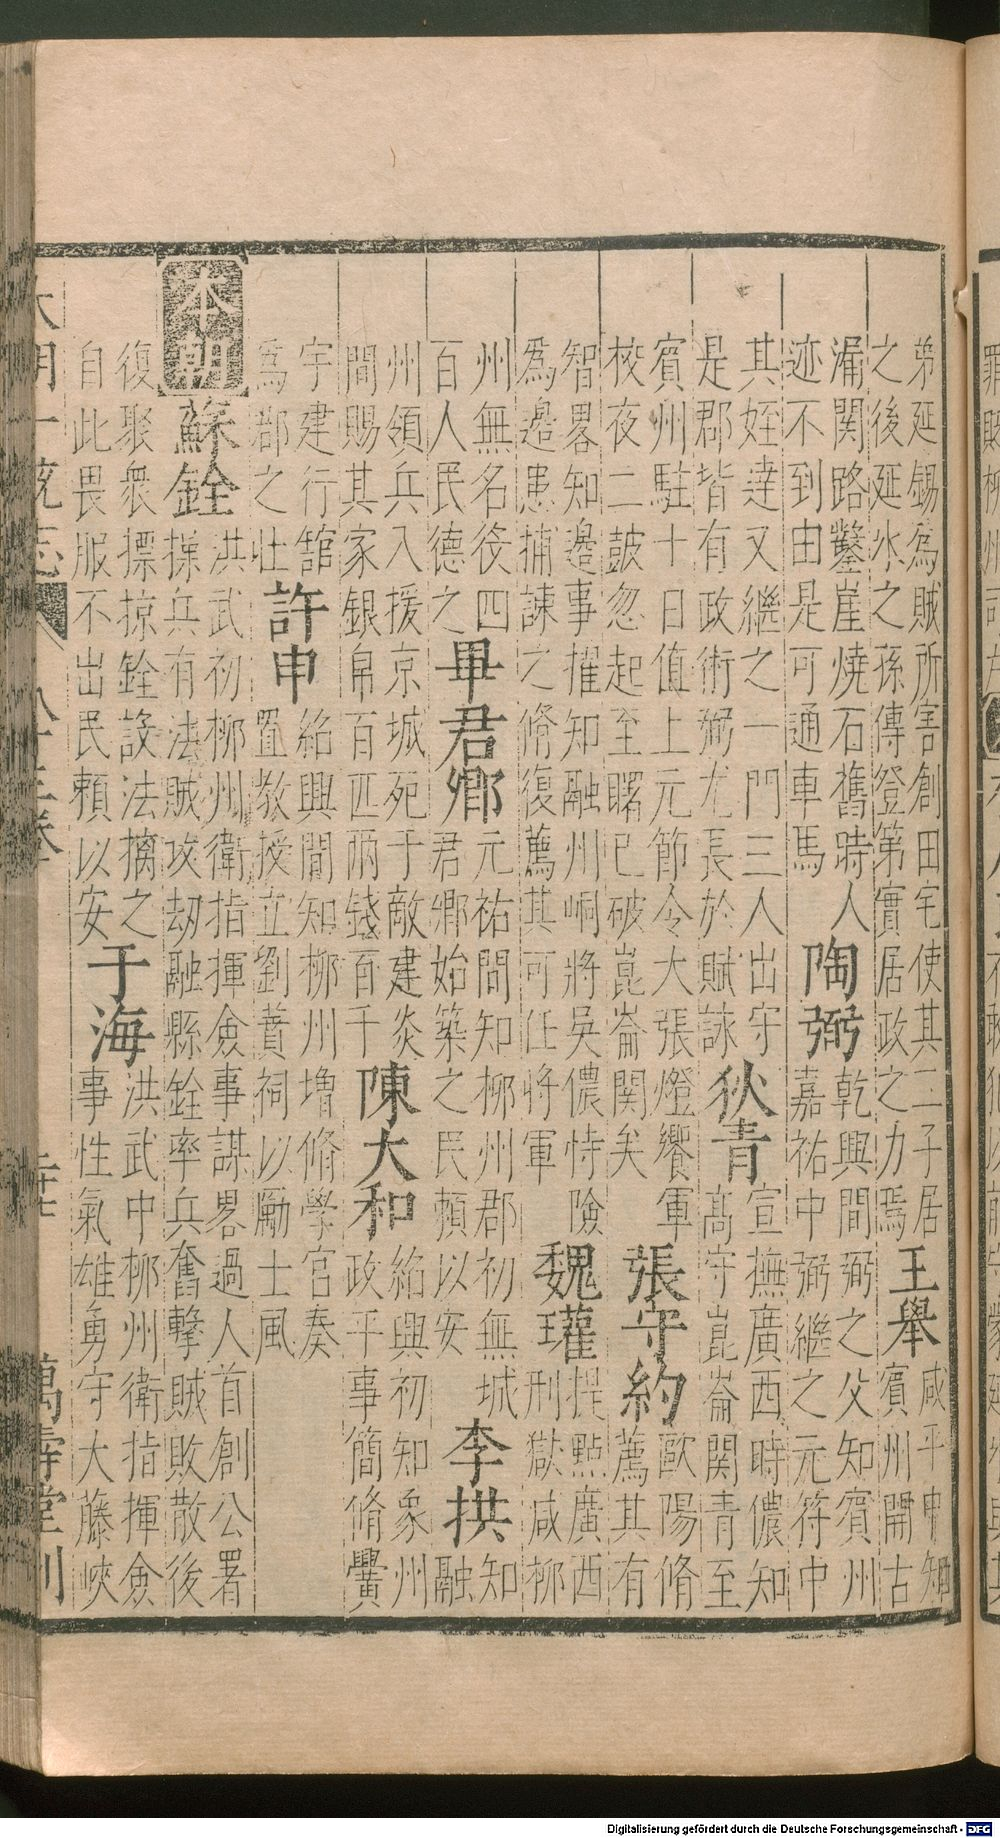 弟延錫為賊所害創田宅使其二子居
之後延氷之孫傳登第實居政之力焉
王舉
咸平中知
賓州開古
漏関路鑿崖燒石舊時人
迹不到由是可通車馬
陶弼
乾興間弼之父知賓州
嘉祐中弼繼之元符中
其姪逹又繼之一門三人出守
是郡皆有政術弼尤長於賦詠
狄青
宣撫廣西時儂知
髙守崑崙関青至
賓州駐十日值上元節令大張燈饗軍
校夜二鼓忽起至曙已破崑崙関矣
張守約
歐陽脩
薦其有
智畧知邊事擢知融州峒將吳儂恃險
為邉患捕諫之脩復薦其可任將軍
魏瓘
提㸃廣西
刑獄咸柳
州無名役四
百人民德之
畢君卿
元祐間知柳州郡初無城
君卿始築之民頼以安
李拱
知
融
州領兵入援京城死于敵建炎
間賜其家銀帛百匹兩錢百千
陳大和
紹興初知象州
政平事簡脩黌
宇建行舘
為郡之壯
許申
紹興間知柳州増脩學官奏
置教授立劉蕡祠以勵士風
本朝
蘇銓
洪武初柳州衛指揮僉事謀畧過人首創公署
操兵有法賊攻劫融縣銓率兵奮擊賊敗散後
復聚衆摽掠銓設法擒之
自此畏服不出民頼以安
于海
洪武中柳州衛指揮僉
事性氣雄勇守大藤峽
大明一統志
萬壽堂刊
Digitalisierung gefördert durch die Deutsche Forschungsgemeinschaft - DFG